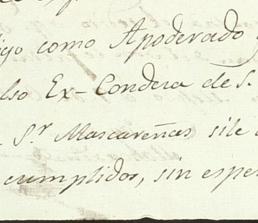 como Apoderado
Ex-Condera de S.
Sr. Mascareñas, si le
cumplidos, sin espe